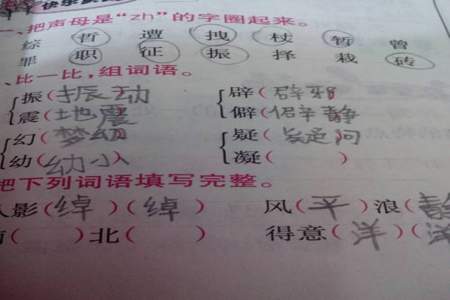 快乐
一、把声母是“zh”的字圈起来。
综 哲 遭 拽 杖 暂 曾
罪 职 征 振 择 栽 砖
、比一比，组词语。
振(振动) 辟(辟邪)
震(地震) 僻(僻静)
幻(梦幻) 疑(疑问)
幼(幼小) 凝( )
把下列词语填写完整。
人影(绰)(绰) 风(平)浪(静
( )北( ) 得意(洋)(洋